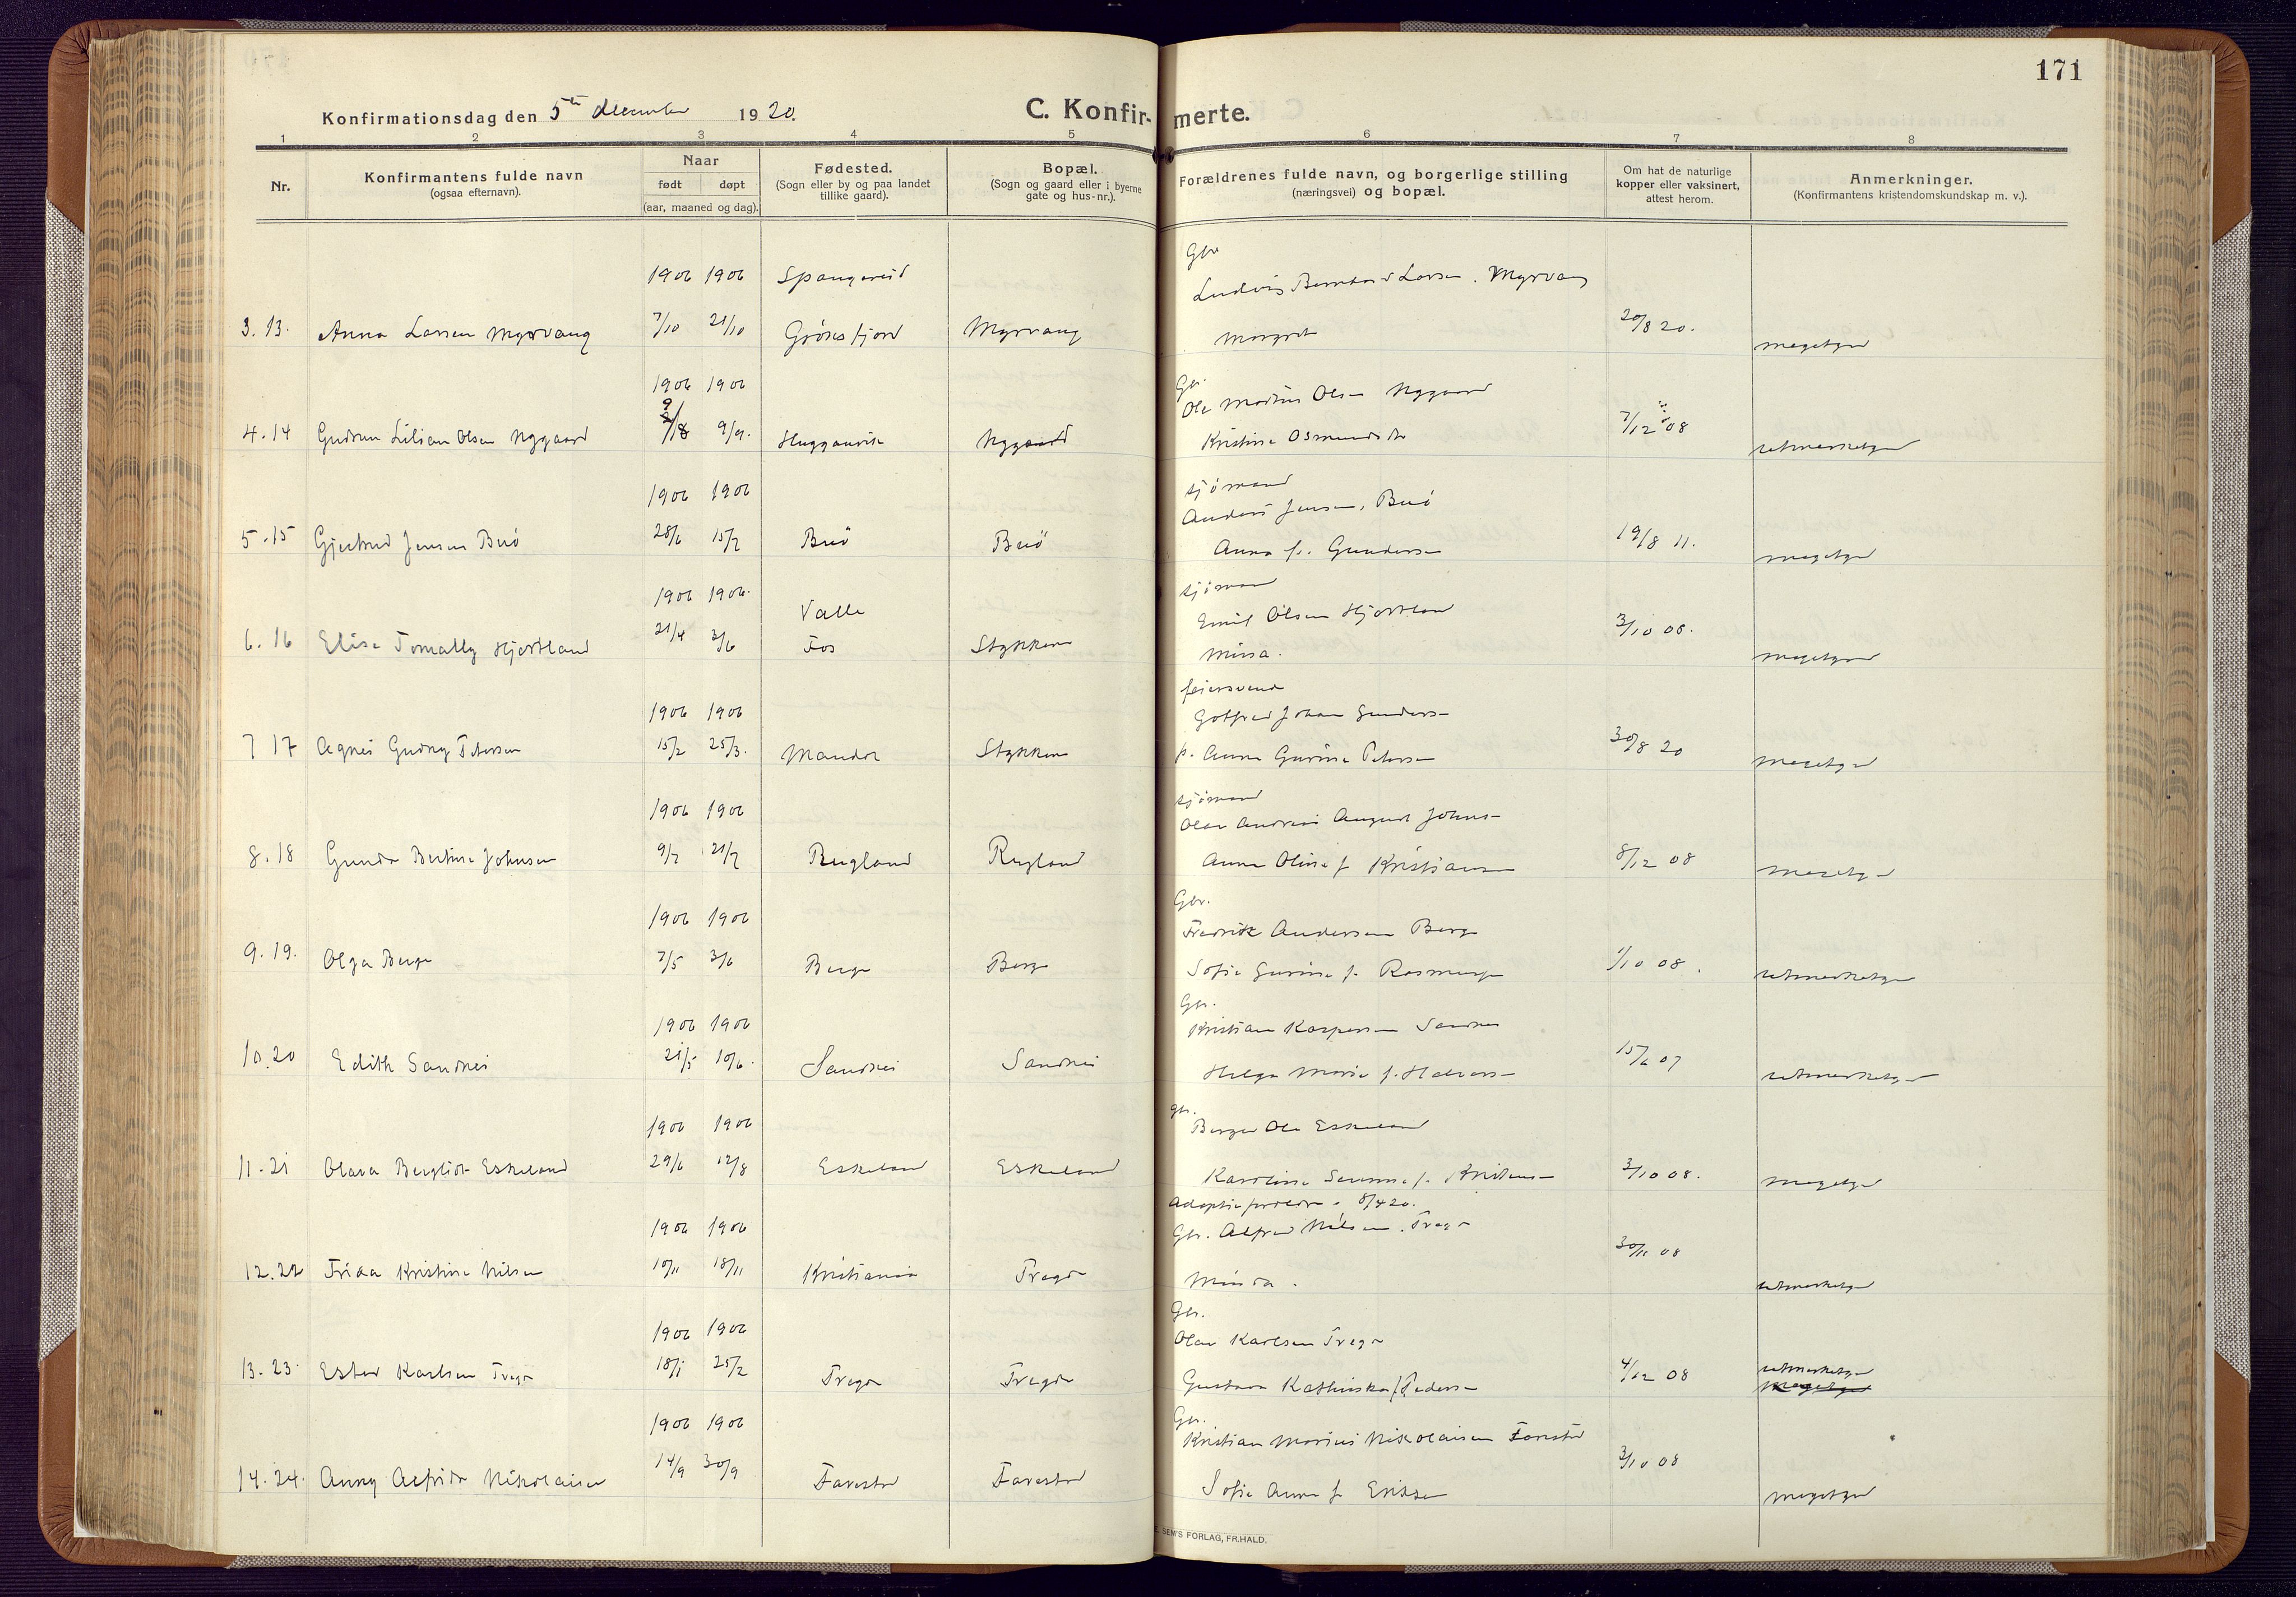 171
Konfirmationsdag den 5te december 1920.
C. Konfir- merte.
1 2 3 4 5 6 7 8
Nr.
Konfirmantens fulde navn
(ogsaa efternavn).
Naar
født døpt
(aar, maaned og dag).
Fødested.
(Sogn eller by og paa landet
tillike gaard).
Bopæl.
(Sogn og gaard eller i byerne
gate og hus-nr.).
Forældrenes fulde navn, og borgerlige stilling
(næringsvei) og bopæl.
Om hat de naturlige
kopper eller vaksinert,
attest herom.
Anmerkninger.
(Konfirmantens kristendomskundskap m. v.).
Gbr
1906 1906 Spangereid Ludvig Larsen. Myrvang
3. 13. Anna Larsen Myrvang 7/10 21/10 Myrvang Margret 20/8 20. megetgod
Gbr.
1906 1906 Ole Olsen Nygaard
4. 14 Gudrun Lilian Olsen Nygaard 9/9. Nygaard Kristine 7/12 08
sjømand
1906 1906 Jensen, Buø
5. 15 Gjertrud Jensen Buø 28/6 15/7 Buø Buø Anna f. Gundersen 19/8 11. megetgod
sjømand
1906 1906. Valle Emil Olsen Hjortland
6. 16 Elise Hjortland 21/4 3/6 Fos Stykken 3/10 08. megetgod
feiersvend
1906 1906 Gotfred Johan Gundersen
7 17 Agnes Gudny Petersen 15/2 25/3. Mandal Stykken f. Anna Petersen 30/8 20 megetgod
sjømand
1906 1906 Olav Andreas August Johnsen
8. 18 Gunda Bertine Johnsen 9/7 21/7 Anna Oline f Kristiansen 8/12 08 megetgod
Gbr.
1906 1906 Fredrik Andersen Berge
9. 19. Olga Berge 7/5 3/6 Berge Berge Sofie f. 1/10 08. utmerketgod
Gbr.
1906 1906 Kristian Kaspersen Sandnes
10. 20 Edith Sandnes 21/5 10/6. Sandnes Sandnes Helga Marie f. Halvorsen 15/6 07 utmerketgod
gbr.
1906 1906 Ole Eskeland
11. 21 Olava Bergliot Eskeland 29/6 12/8 Eskeland Eskeland Karoline f. 3/10 08. megetgod
8/4 20.
1906 1906 Gbr. Alfred Nilsen. Tregde
12. 22 Frida Kristine Nilsen 10/11 18/11 Kristiania Tregde Minda. 30/11 08 utmerketgod
Gbr.
1906 1906 Olav Karlsen Tregde
13. 23. Ester Karlsen Tregde 18/1 25/2 Tregde Tregde Gustava f. Pedersen 4/12 08 utmerketgod
megetgod
Gbr.
1906 1906 Kristian Marius Nikolaisen Farestad
14. 24. Anny Alfrida Nikolaisen 14/9 30/9 Farestad Farestad Sofie Anna f Eriksen 3/10 08 megetgod
SEM'S FORLAG, FR.HALD.